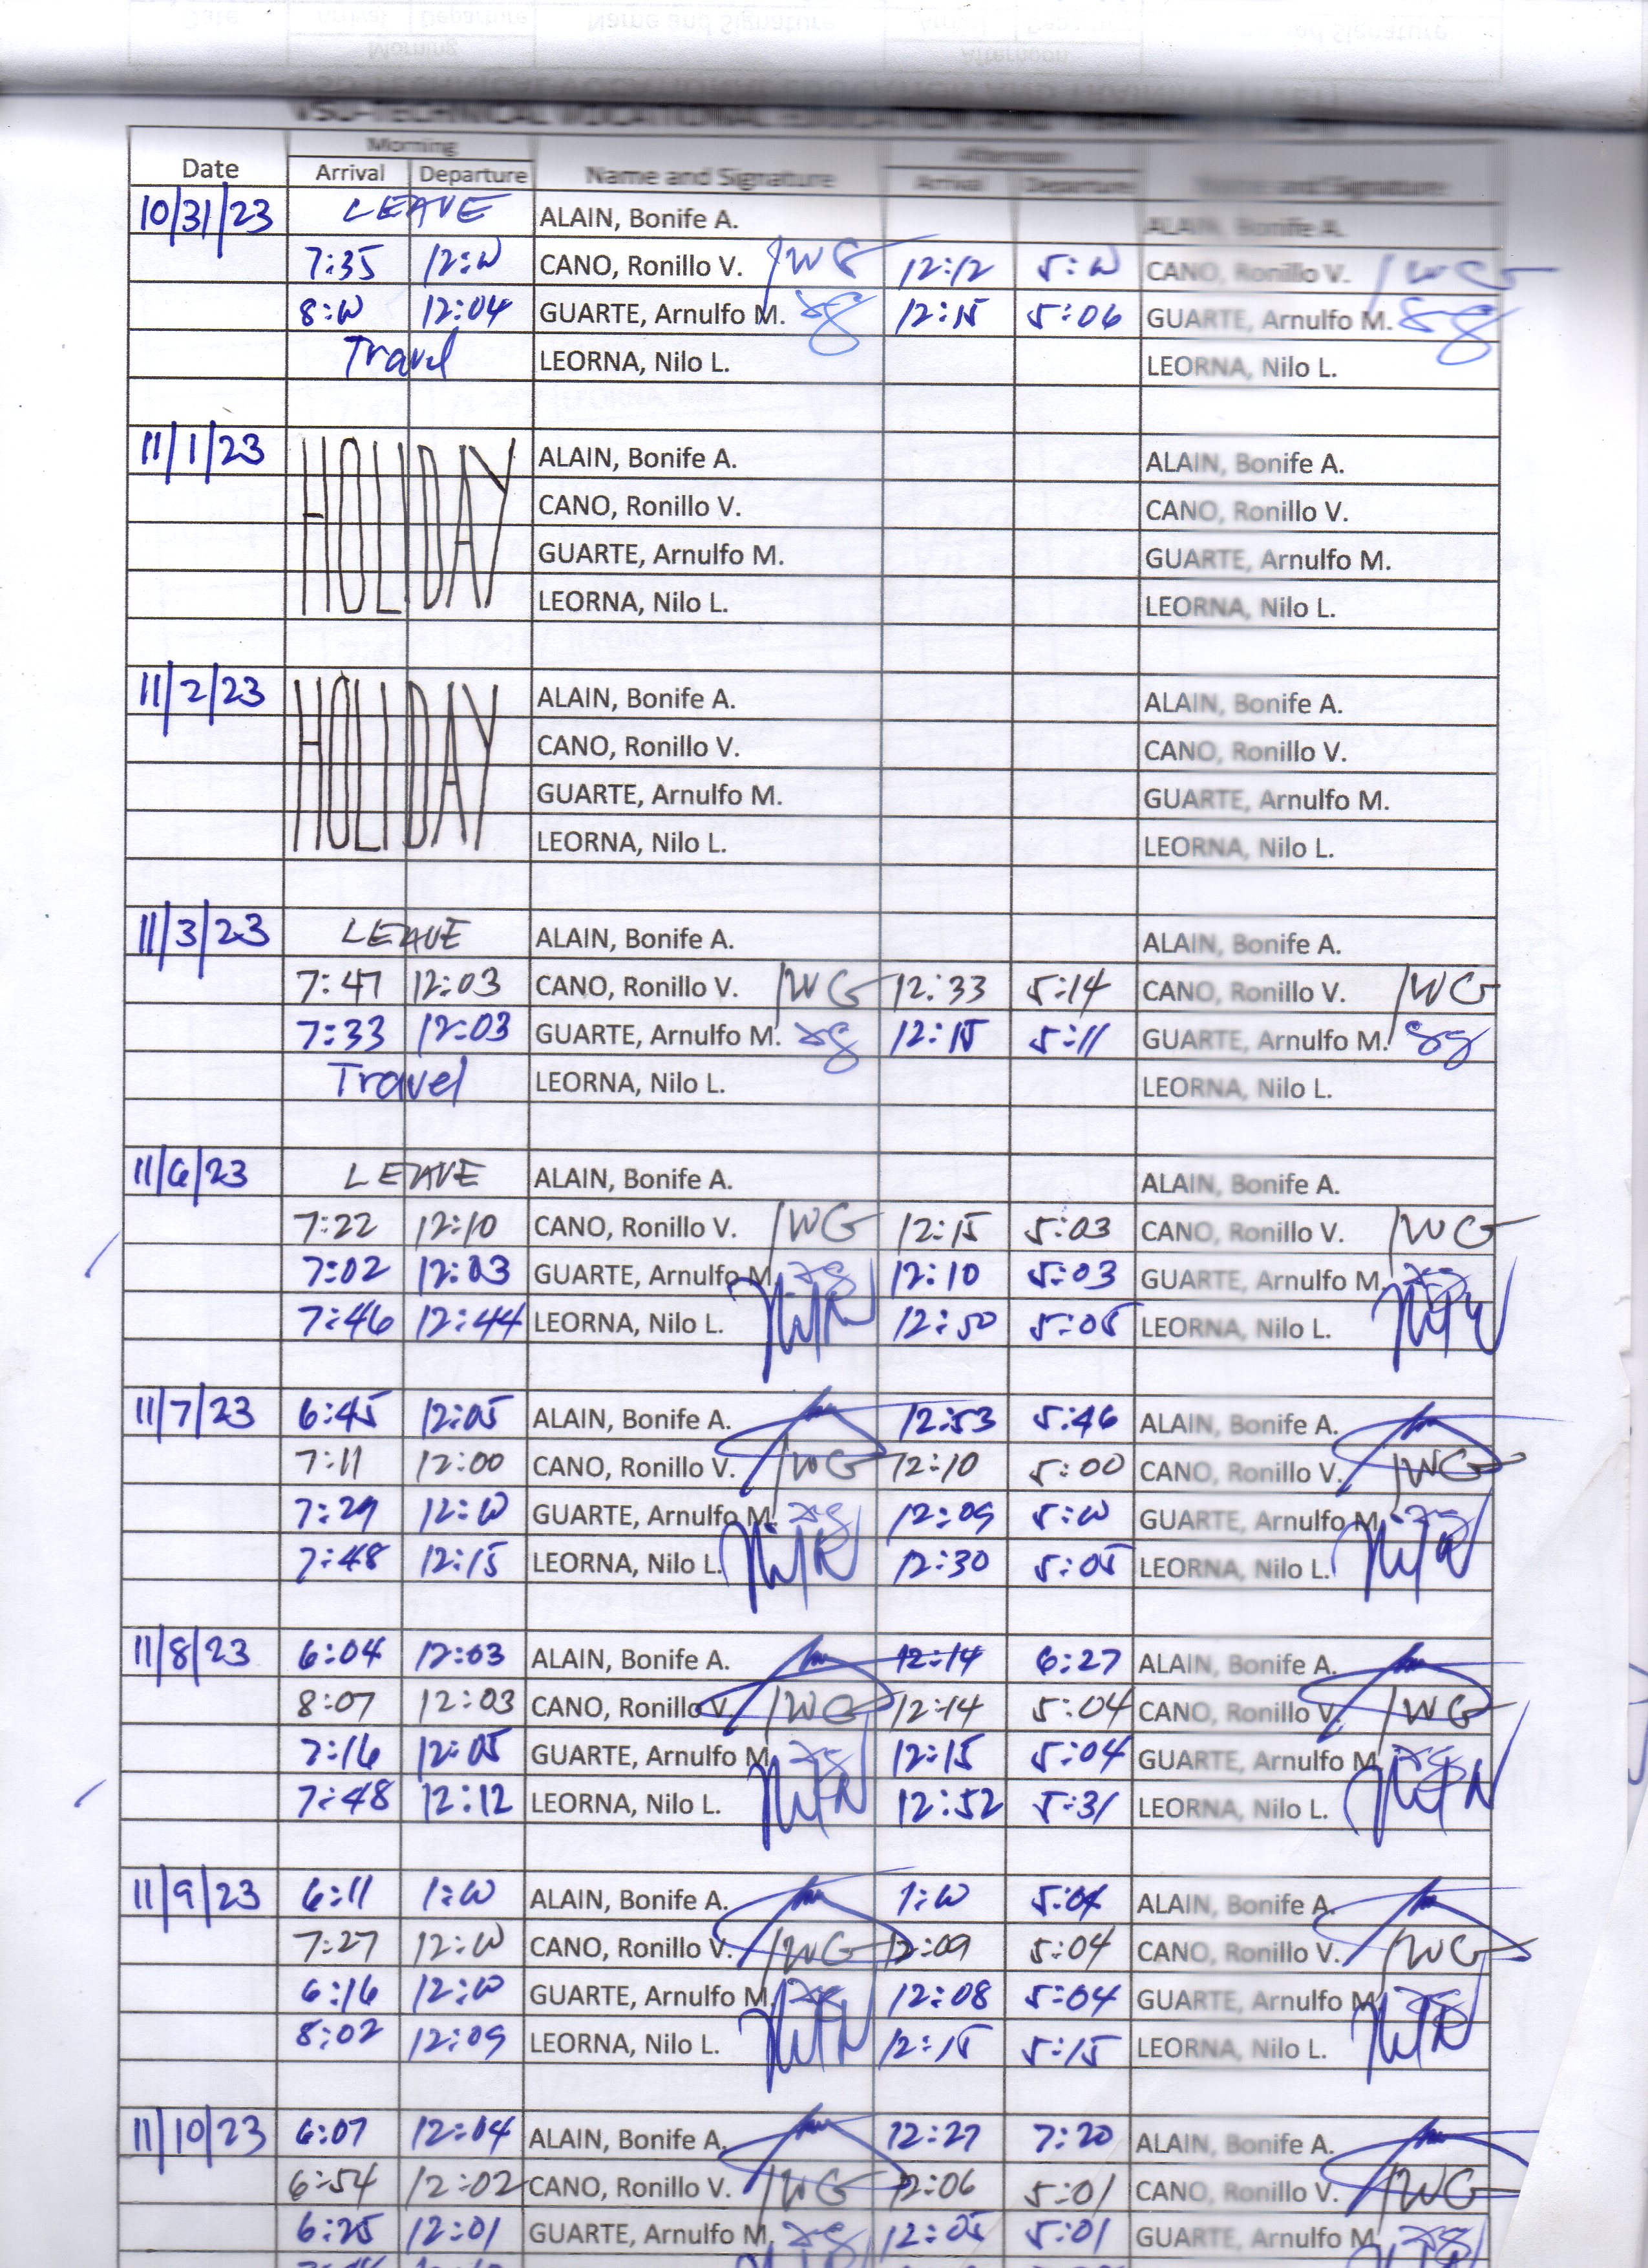 VSU-TECHNICAL VOCATIONAL EDUCATION AND
Morning Afternoon
Date Arrival Departure Name and Signature Arrival Departure Name and Signature
10/31/23 LEAVE ALAIN, Bonife A. ALAIN, Bonife A.
7:35 12:00 CANO, Ronillo V. 12:12 5:00 CANO, Ronillo V.
8:00 12:04 GUARTE, Arnulfo M. 12:15 5:06 GUARTE, Arnulfo M.
Travel LEORNA, Nilo L. LEORNA, Nilo L.
11/1/23 HOLIDAY ALAIN, Bonife A. ALAIN, Bonife A.
CANO, Ronillo V. CANO, Ronillo V.
GUARTE, Arnulfo M. GUARTE, Arnulfo M.
LEORNA, Nilo L. LEORNA, Nilo L.
11/2/23 HOLIDAY ALAIN, Bonife A. ALAIN, Bonife A.
CANO, Ronillo V. CANO, Ronillo V.
GUARTE, Arnulfo M. GUARTE, Arnulfo M.
LEORNA, Nilo L. LEORNA, Nilo L.
11/3/23 LEAVE ALAIN, Bonife A. ALAIN, Bonife A.
7:47 12:03 CANO, Ronillo V. 12:33 5:14 CANO, Ronillo V.
7:33 12:03 GUARTE, Arnulfo M. 12:15 5:11 GUARTE, Arnulfo M.
Travel LEORNA, Nilo L. LEORNA, Nilo L.
11/6/23 LEAVE ALAIN, Bonife A. ALAIN, Bonife A.
7:22 12:10 CANO, Ronillo V. 12:15 5:03 CANO, Ronillo V.
7:02 12:03 GUARTE, Arnulfo M. 12:10 5:03 GUARTE, Arnulfo M.
7:46 12:44 LEORNA, Nilo L. 12:50 5:05 LEORNA, Nilo L.
11/7/23 6:45 12:05 ALAIN, Bonife A. 12:53 5:46 ALAIN, Bonife A.
7:11 12:00 CANO, Ronillo V. 12:10 5:00 CANO, Ronillo V.
7:29 12:00 GUARTE, Arnulfo M. 12:09 5:00 GUARTE, Arnulfo M.
7:48 12:15 LEORNA, Nilo L. 12:30 5:05 LEORNA, Nilo L.
11/8/23 6:04 12:03 ALAIN, Bonife A. 12:14 6:27 ALAIN, Bonife A.
8:07 12:03 CANO, Ronillo V. 12:14 5:04 CANO, Ronillo V.
7:16 12:05 GUARTE, Arnulfo M. 12:15 5:04 GUARTE, Arnulfo M.
7:48 12:12 LEORNA, Nilo L. 12:52 5:31 LEORNA, Nilo L.
11/9/23 6:11 1:00 ALAIN, Bonife A. 1:00 5:04 ALAIN, Bonife A.
7:27 12:00 CANO, Ronillo V. 12:09 5:04 CANO, Ronillo V.
6:16 12:00 GUARTE, Arnulfo M. 12:08 5:04 GUARTE, Arnulfo M.
8:02 12:09 LEORNA, Nilo L. 12:15 5:15 LEORNA, Nilo L.
11/10/23 6:07 12:04 ALAIN, Bonife A. 12:27 7:20 ALAIN, Bonife A.
6:54 12:02 CANO, Ronillo V. 12:06 5:01 CANO, Ronillo V.
6:25 12:01 GUARTE, Arnulfo M. 12:05 5:01 GUARTE, Arnulfo M.